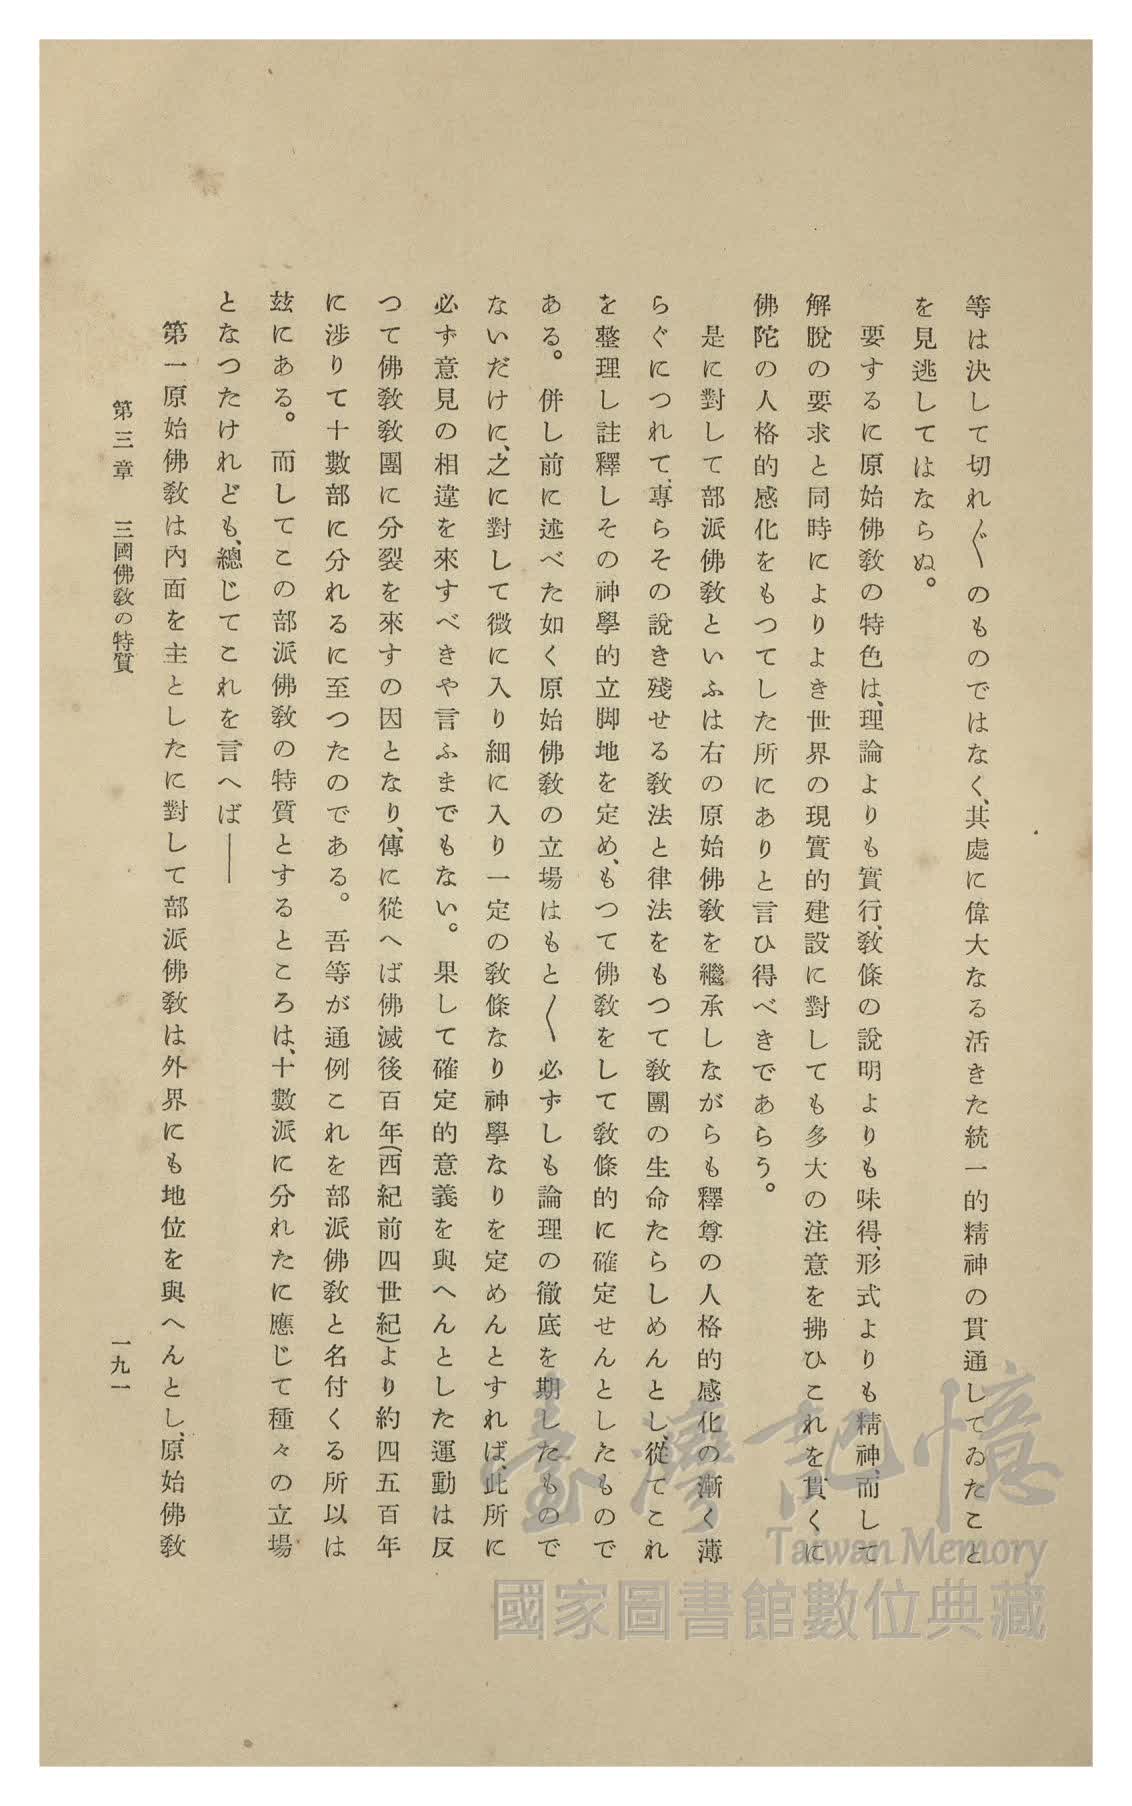 等は決して切れ〴〵のものではなく、其處に偉大なる活きた統一的精神の貫通してゐたこと
を見逃してはならぬ。
要するに原始佛敎の特色は、理論よりも實行、敎條の說明よりも味得、形式よりも精神、而して
解脫の要求と同時によりよき世界の現實的建設に對しても多大の注意を拂ひこれを貫くに
佛陀の人格的感化をもつてした所にありと言ひ得べきであらう。
是に對して部派佛敎といふは右の原始佛敎を繼承しながらも釋尊の人格的感化の漸く薄
らぐにつれて、專らその說き殘せる敎法と律法をもつて敎團の生命たらしめんとし、從てこれ
を整理し註釋しその神學的立脚地を定め、もつて佛敎をして敎條的に確定せんとしたもので
ある。併し前に述べた如く原始佛敎の立場はもと〱必ずしも論理の徹底を期したもので
ないだけに、之に對して微に入り細に入り一定の敎條なり神學なりを定めんとすれば、此所に
必ず意見の相違を來すべきや言ふまでもない。果して確定的意義を與へんとした運動は反
つて佛敎敎團に分裂を來すの因となり、傳に從へば佛滅後百年(西紀前四世紀)より約四五百年
に涉りて十數部に分れるに至つたのである。吾等が通例これを部派佛敎と名付くる所以は
玆にある。而してこの部派佛敎の特質とするところは、十數派に分れたに應じて種々の立場
となつたけれども、總じてこれを言へば――
第一原始佛敎は內面を主としたに對して部派佛敎は外界にも地位を與へんとし、原始佛敎
第三章 三國佛敎の特質 一九一
臺灣記憶
Taiwan Memory
國家圖書館數位典藏